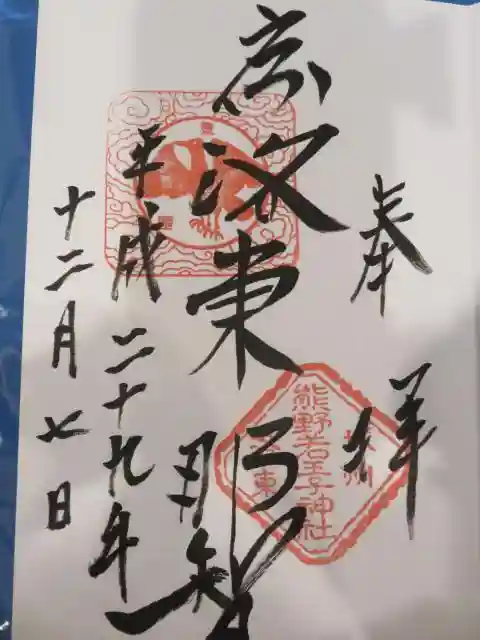 奉拝
京洛東
那智
熊野若王子神社
京洛東
平成二十九年
十二月七日